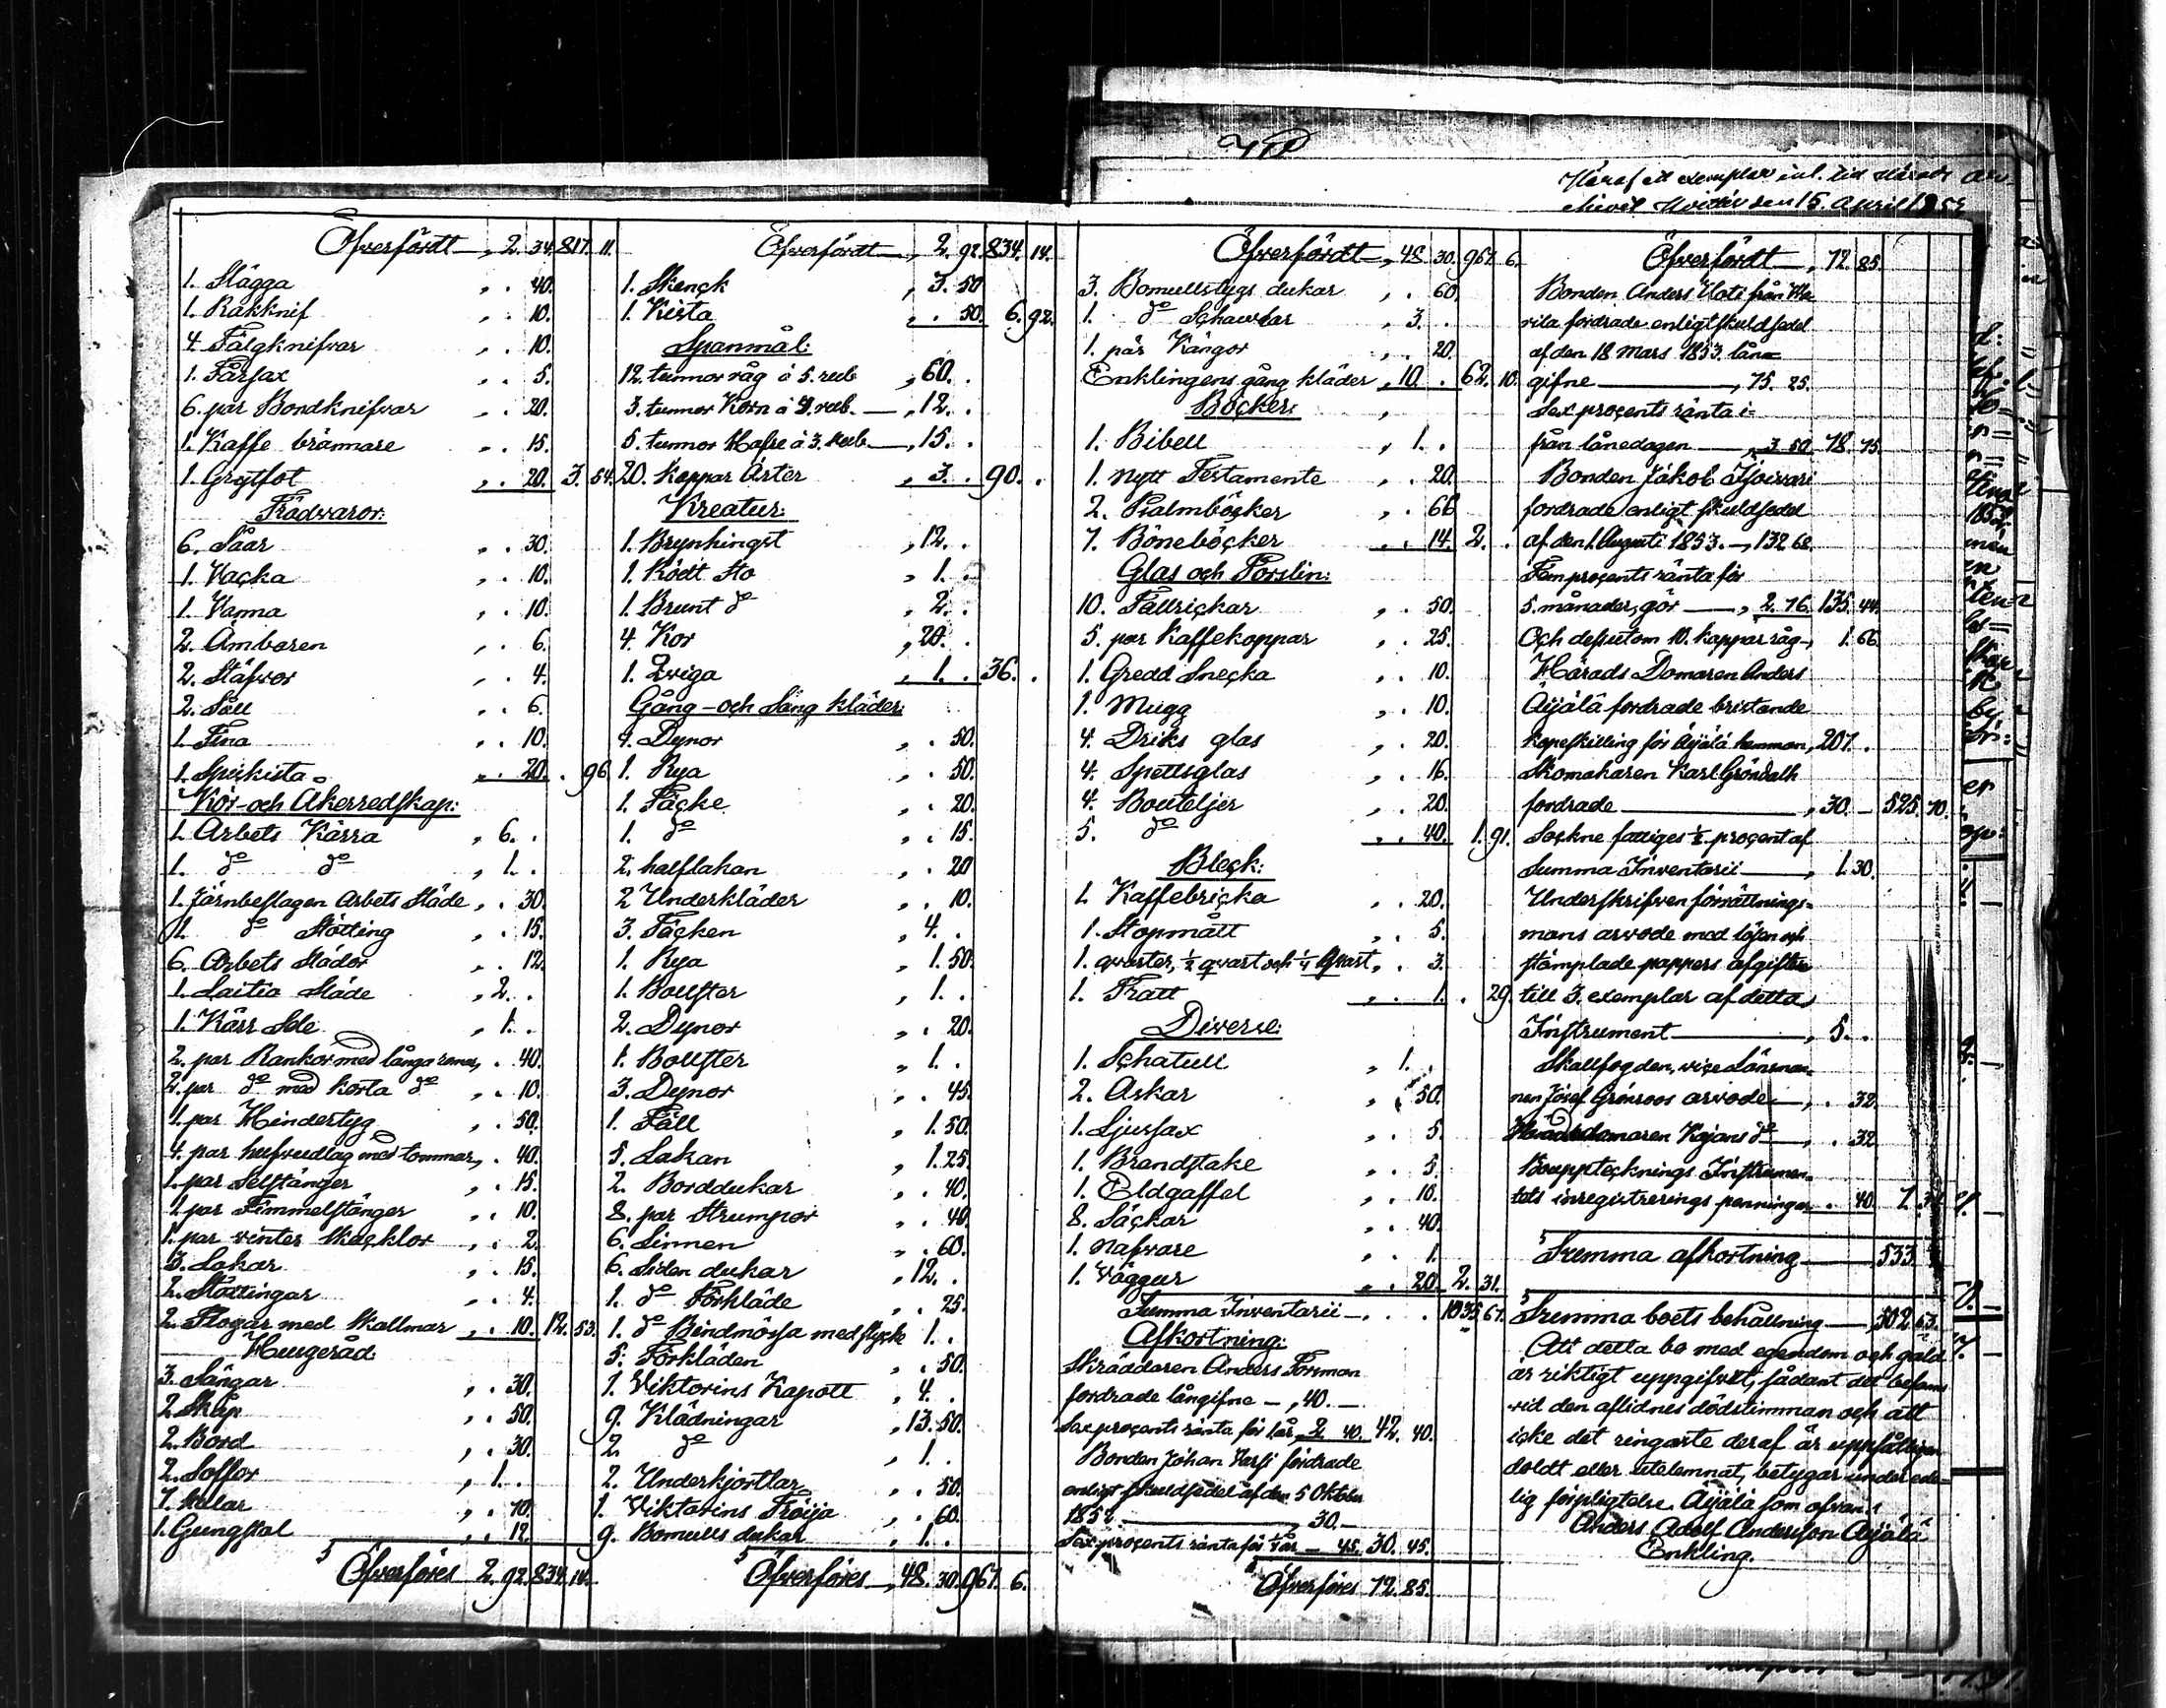 Häraf ett exemplar inl. till Härads Ar-
den 15. April 1854
Öfverfördt —, 2. 34. 817. 11.
1. Slägga „ . 40.
1. Rakknif „ . 10.
4. Tälgknifvar „ . 10.
1. Fårsax „ . 5.
6. par Bordknifvar „ . 20.
1. Kaffe brännare „ . 15.
1. Grytfot „ . 20. 3. 54.
Trädvaror:
6. Såar „ . 30.
1. Vacka „ . 10.
1. Vanna „ . 10.
2. Ämbaren „ . 6.
2. Stäfvor „ . 4.
2. Såll „ . 6.
1. Tina „ . 10.
1. Spiskista „ . 20. . 96.
Kör- och Åkerredskap:
1. Arbets Kärra „ 6. .
1. do do „ 1. .
1. Järnbeslagen Arbets Släde „ . 30.
1. do Stötting „ . 15.
6. Arbets Slädor „ . 12.
1. Laitio Släde „ 2. .
1. Kärr Sele „ 1. .
2. par Rankor med långa remar „ . 40.
2. par do med korta do „ . 10.
1. par Hindertyg „ . 50.
4. par hufvudlag med tömmar „ . 40.
1. par Selstänger „ . 15.
1. par Fimmelstänger „ . 10.
1. par vinter Skacklor „ . 2.
3. Lokor „ . 15.
2. Stöttingar „ . 4.
2. Plogar med Skallmar „ . 10. 12. 53.
Husgeråd:
3. Sängar „ . 30.
2. Skåp „ . 50.
2. Bord „ . 30.
2. Soffor „ 1. .
7. Stolar „ . 70.
1. Gungstol „ . 12.
Öfverföres 2. 92. 834. 14.
Öfverfördt —, 2. 92. 834. 14.
1. Skenck „ 3. 50
1. Kista „ . 50. 6. 92.
Spanmål:
12. tunnor råg à 5. rub. „ 60. .
3. tunnor Korn à 4. rub. — „ 12. .
5. tunnor Hafre à 3. rub. — „ 15. .
20. kappar Ärter „ 3. . 90. .
Kreatur:
1. Brynhingst „ 12. .
1. Rödt Sto „ 1. .
1. Brunt do „ 2. .
4. Kor „ 20. .
1. Qviga „ 1. . 36. .
Gång- och Säng kläder:
4. Dynor „ . 50.
1. Rya „ . 50.
1. Täcke „ . 20.
1. do „ . 15.
2. halflakan „ . 20
2 Underkläder „ . 10.
3. Täcken „ 4. .
1. Rya „ 1. 50.
1. Bolster „ 1. .
2. Dynor „ . 20.
1. Bolster „ 1. .
3. Dynor „ . 45.
1. Fäll „ 1. 50.
5. Lakan „ 1. 25.
2. Borddukar „ . 40.
8. par Strumpor „ . 40.
6. Linnen „ . 60.
6. Siden dukar „ 12. .
1. do Förkläde „ . 25.
1. do Bindmössa med stycke 1. .
5. Förkläden „ . 50.
1. Viktorins Kapott „ 4. .
9. Klädningar „ 13. 50.
2. do „ 1. .
2. Underkjortlar „ . 50.
1. Viktorins Tröija „ . 60.
9. Bomulls dukar „ 1. .
Öfverföres —, 48. 30. 967. 6.
Öfverfördt —, 48. 30. 967. 6.
3. Bomullstygs dukar „ . 60.
1. do Schawlar „ 3. .
1. pår Kängor „ . 20.
Enklingens gång kläder „ 10. . 62. 10.
Böcker:
1. Bibell „ 1. .
1. Nytt Testamente „ . 20.
2. Psalmböcker „ . 66
7. Böneböcker „ . 14. 2. .
Glas och Porslin:
10. Tallrickar „ . 50.
5. par Kaffekoppar „ . 25.
1. Gredd Snecka „ . 10.
1. Mugg „ . 10.
4. Driks glas „ . 20.
4. Spettsglas „ . 16.
4. Bouteljer „ . 20.
5. do „ . 40. 1. 91.
Bleck:
1. Kaffebricka „ . 20.
1. Stopmått „ . 5.
1. qvarter, ½ qvart och ¼ Qvart „ . 3.
1. Tratt „ . 1. . 29.
Diverse:
1. Schatull „ 1. .
2. Askar „ . 50.
1. Ljussax „ . 5.
1. Brandstake „ . 5.
1. Eldgaffel „ . 10.
8. Säckar „ . 40.
1. Nafvare „ . 1.
1. Väggur „ . 20. 2. 31.
Summa Inventarii — . . . 1035. 67.
Afkortning:
Skräddaren Anders Forsman
fordrade långifne — „ 40. —
Sexprocents ränta för 1 år 2. 40. 42. 40.
Bonden Johan Harsi fordrade
enligt skuldsedel af den 5 Oktober
1852. — „ 30. —
Sexprocents ränta för ¼ år — 45. 30. 45.
Öfverföres 72. 85.
Öfverfördt —, 72. 85.
Bonden Anders Uoti från
fordrade enligt skuldsedel
af den 18 Mars 1853. låne=
gifne —, 75. 25.
Sex procents ränta i=
från lånedagen —, 3. 50. 78. 75.
Bonden Jakob
fordrade enligt skuldsedel
af den 1. Augusti 1853. —, 132. 68.
Fem procents ränta för
5. månader, gör —, 2. 76. 135. 44.
Och desutom 10. kappar råg —, 1. 66.
Härads Domaren Anders
Äijälä fordrade bristande
köpeskilling för Äijälä hemman, 207. .
Skomakaren Karl Gröndalh
fordrade —, 30. — 525. 70.
Sockne fattiges ½ procent af
Summa Inventarii —, 1. 30.
Underskrifven förrättnings=
mans arvode med lösen och
stämplade pappers afgiften
till 3. exemplar af detta
Instrument —, 5. .
Skallfogden, vice Länsman=
nen Josef Grönroos arvode —, . 32.
Häradsdomaren Kajans do —, . 32
Bouppteckning Instrumen=
tets inregistrerings penningar . 40. 7. 34.
Summa afkortning — 533.
Summa boets behållning — 502. 63.
Att detta bo med egendom och gäld
är riktigt uppgifvet, sådant det befans
vid den aflidnes dödstimman och att
icke det ringaste deraf är uppsåtligen
doldt eller utelemnat, betygar under ede=
lig förpligtelse. Äijälä som ofvan.
Anders Adolf Andersson Äijälä
Enkling.